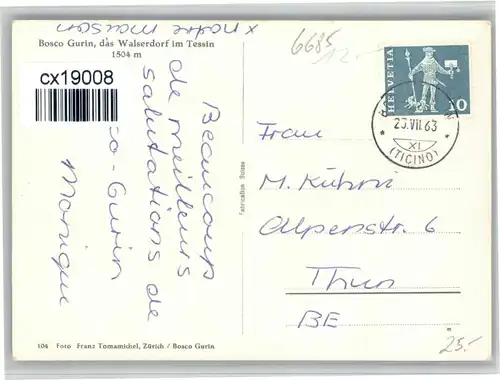 x notre maison
Bosco Gurin, das Walserdorf im Tessin
1504 m
cx19008
Beaucoup
de meilleurs
salutations de
co-Gurin
Monique
104 Foto Franz Tomamichel, Zürich / Bosco Gurin
Fabrication Suisse
6685
12.-
HELVETIA
10
23.VII.63
XI
(TICINO)
Frau
M. Kühni
Alpenstr. 6
Thun
BE
25.-